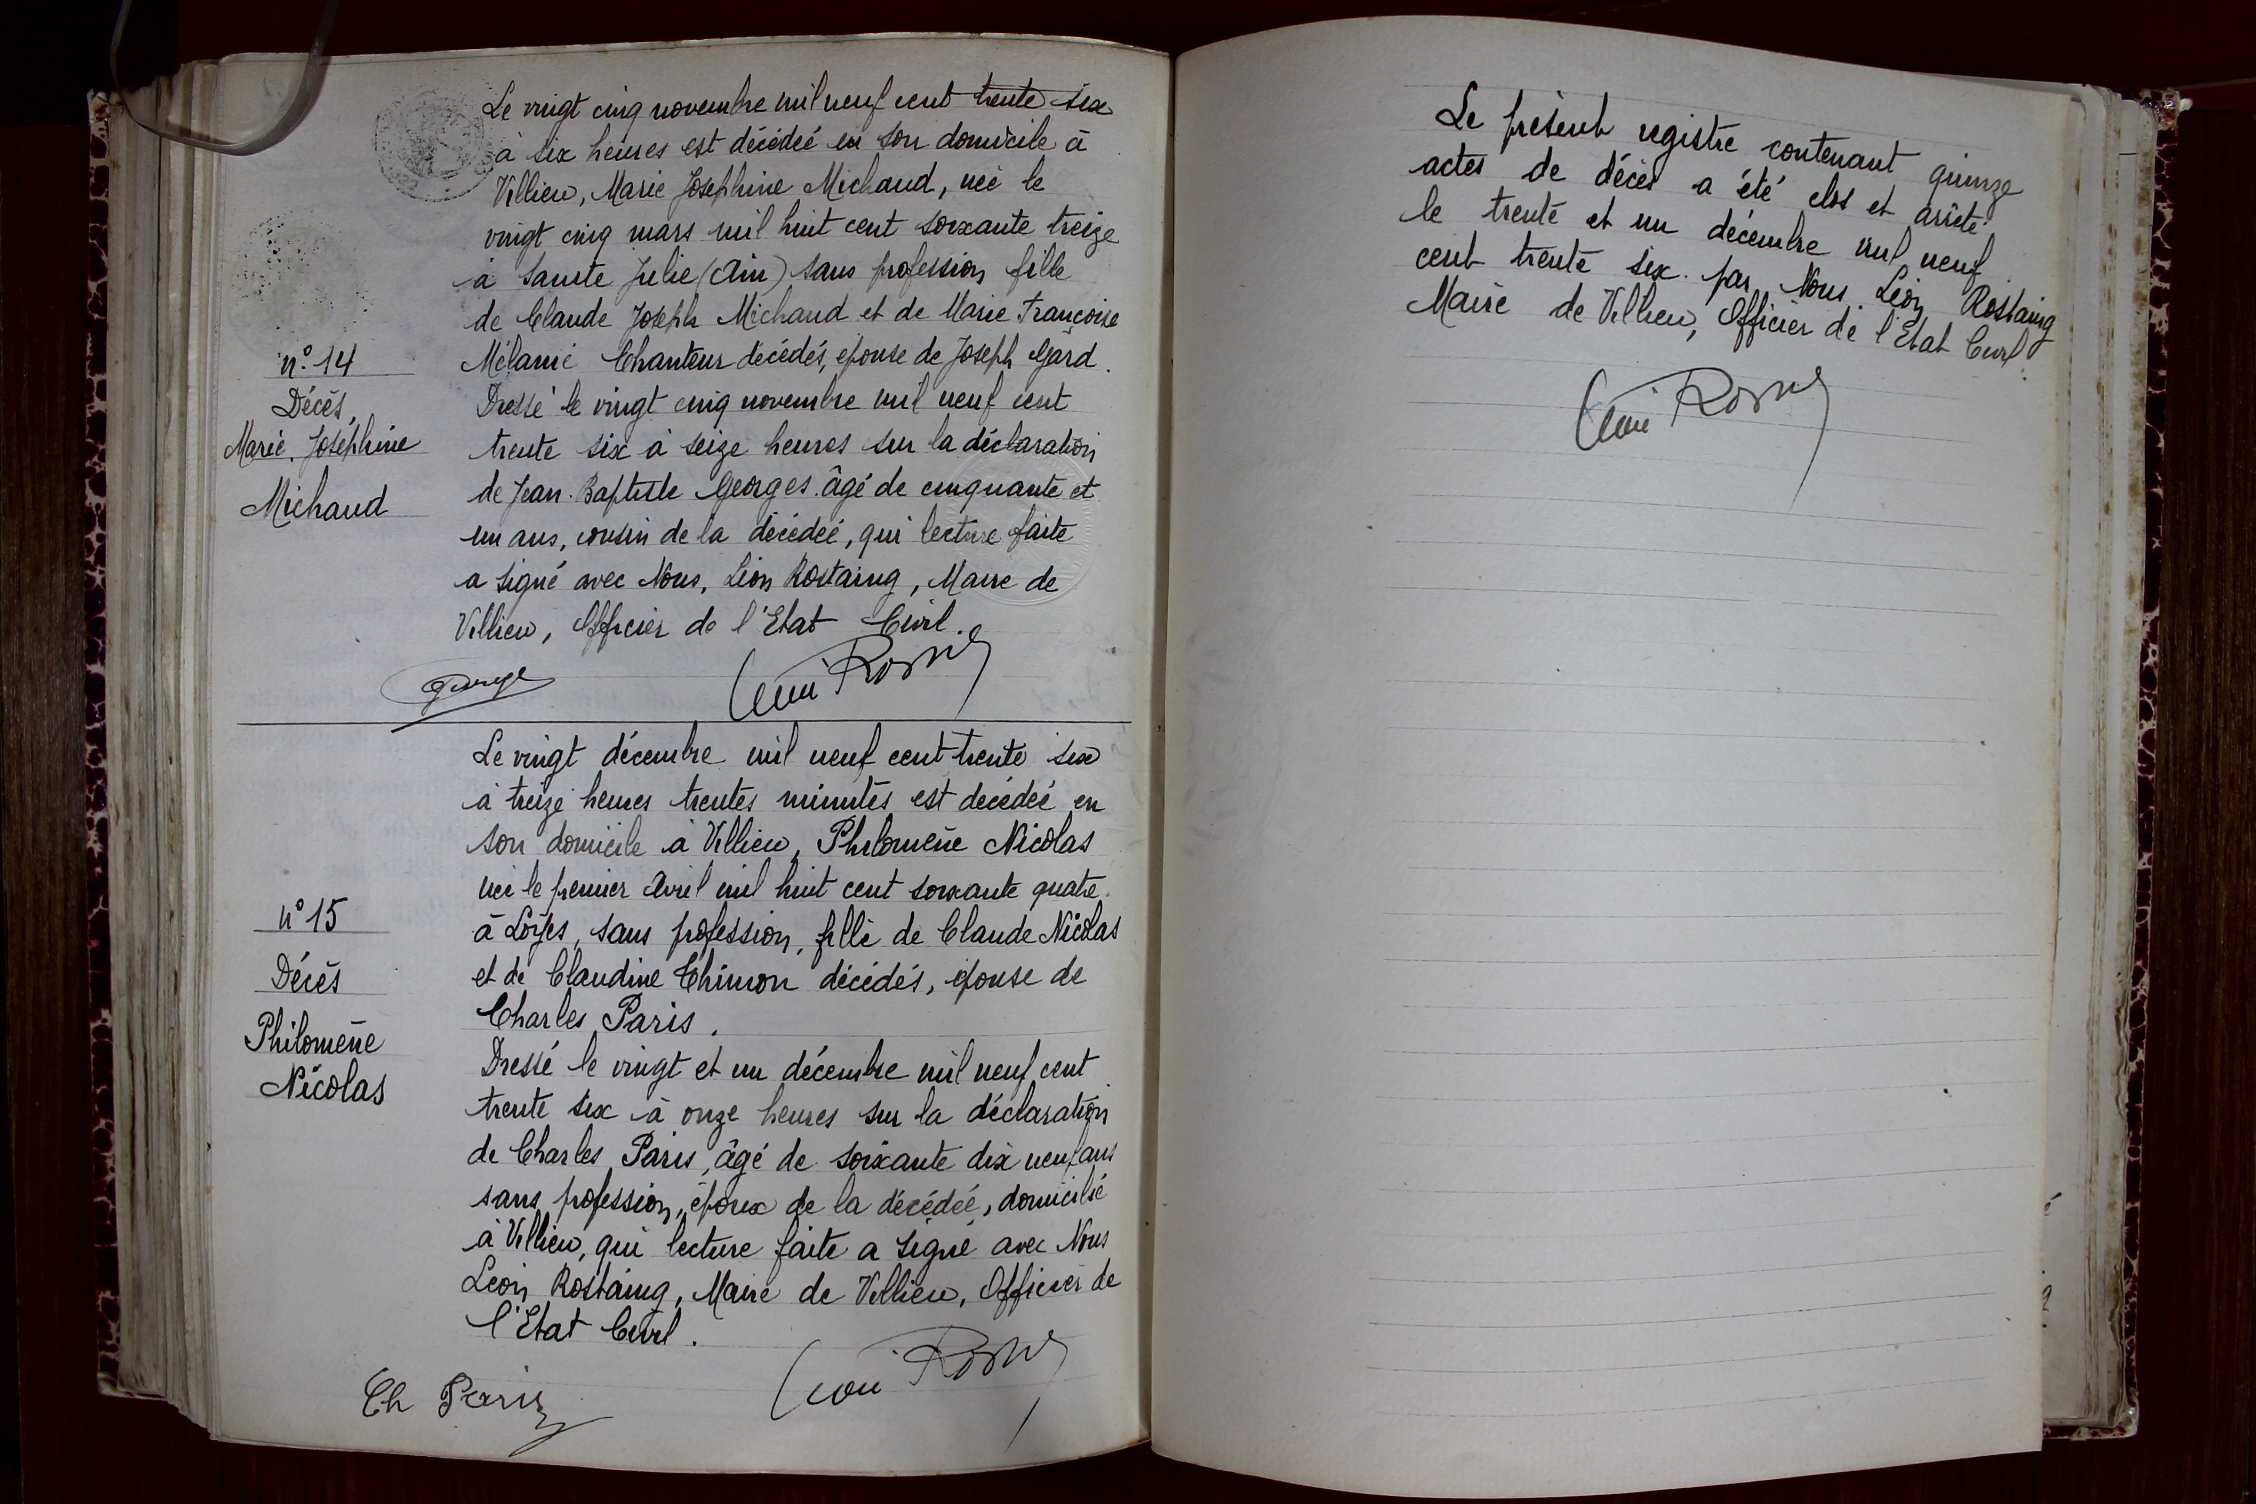 n° 14
Décès
Marie, Joséphine
Michaud
Le vingt cinq novembre mil neuf cent trente six
à six heures est décédée en son domicile à
Villieu, Marie Joséphine Michaud, née le
vingt cinq mars mil huit cent soixante treize
à Sainte Julie (Ain) sans profession fille
de Claude Joseph Michaud et de Marie Françoise
Mélanie Chanteur décédés, épouse de Joseph Gard.
Dressé le vingt cinq novembre mil neuf cent
trente six à seize heures sur la déclaration
de Jean-Baptiste Georges âgé de cinquante et
un ans, cousin de la décédée, qui lecture faite
a signé avec Nous, Léon Rostaing, Maire de
Villieu, Officier de l'Etat Civil.
n° 15
Décès
Philomène
Nicolas
Le vingt décembre mil neuf cent trente six
à treize heures trentes minutes est décédée en
son domicile à Villieu, Philomène Nicolas
née le premier Avril mil huit cent soixante quatre
à Loyes, sans profession, fille de Claude Nicolas
et de Claudine Thimon décédés, épouse de
Charles Paris.
Dressé le vingt et un décembre mil neuf cent
trente six à onze heures sur la déclaration
de Charles Paris, âgé de soixante dix neuf ans
sans profession, époux de la décédée, domicilié
à Villieu, qui lecture faite a signé avec Nous
Léon Rostaing, Maire de Villieu, Officier de
l'Etat Civil.
Ch Paris
Le présent registre contenant quinze
actes de décès a été clos et arrêté
le trente et un décembre mil neuf
cent trente six par Nous Léon Rostaing
Maire de Villieu, Officier de l'Etat Civil